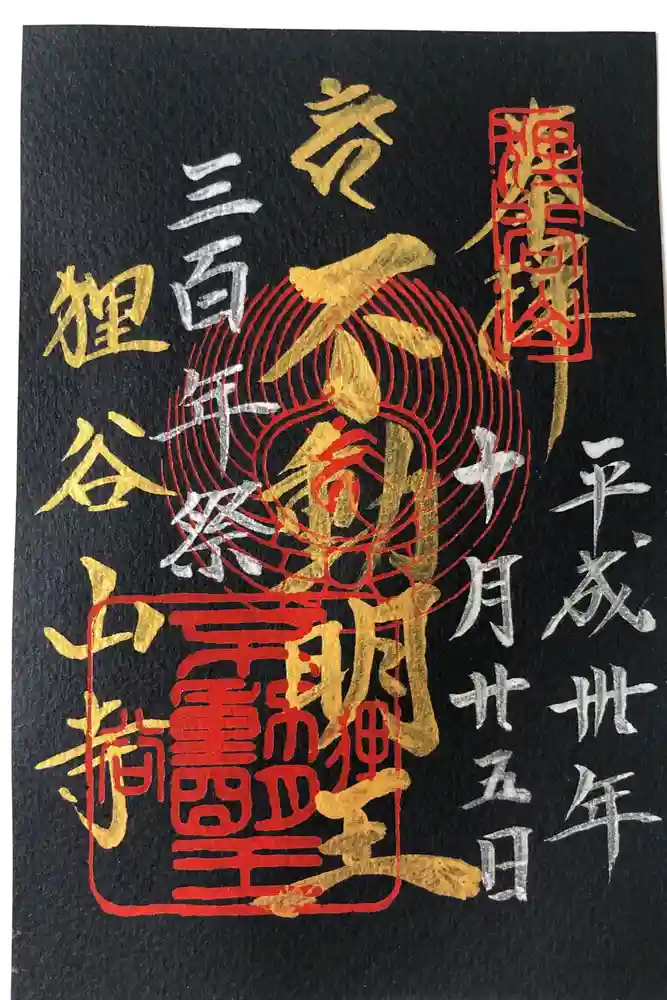 奉拝
平成卅年
十月廿五日
不動明王
三百年祭
狸谷山寺